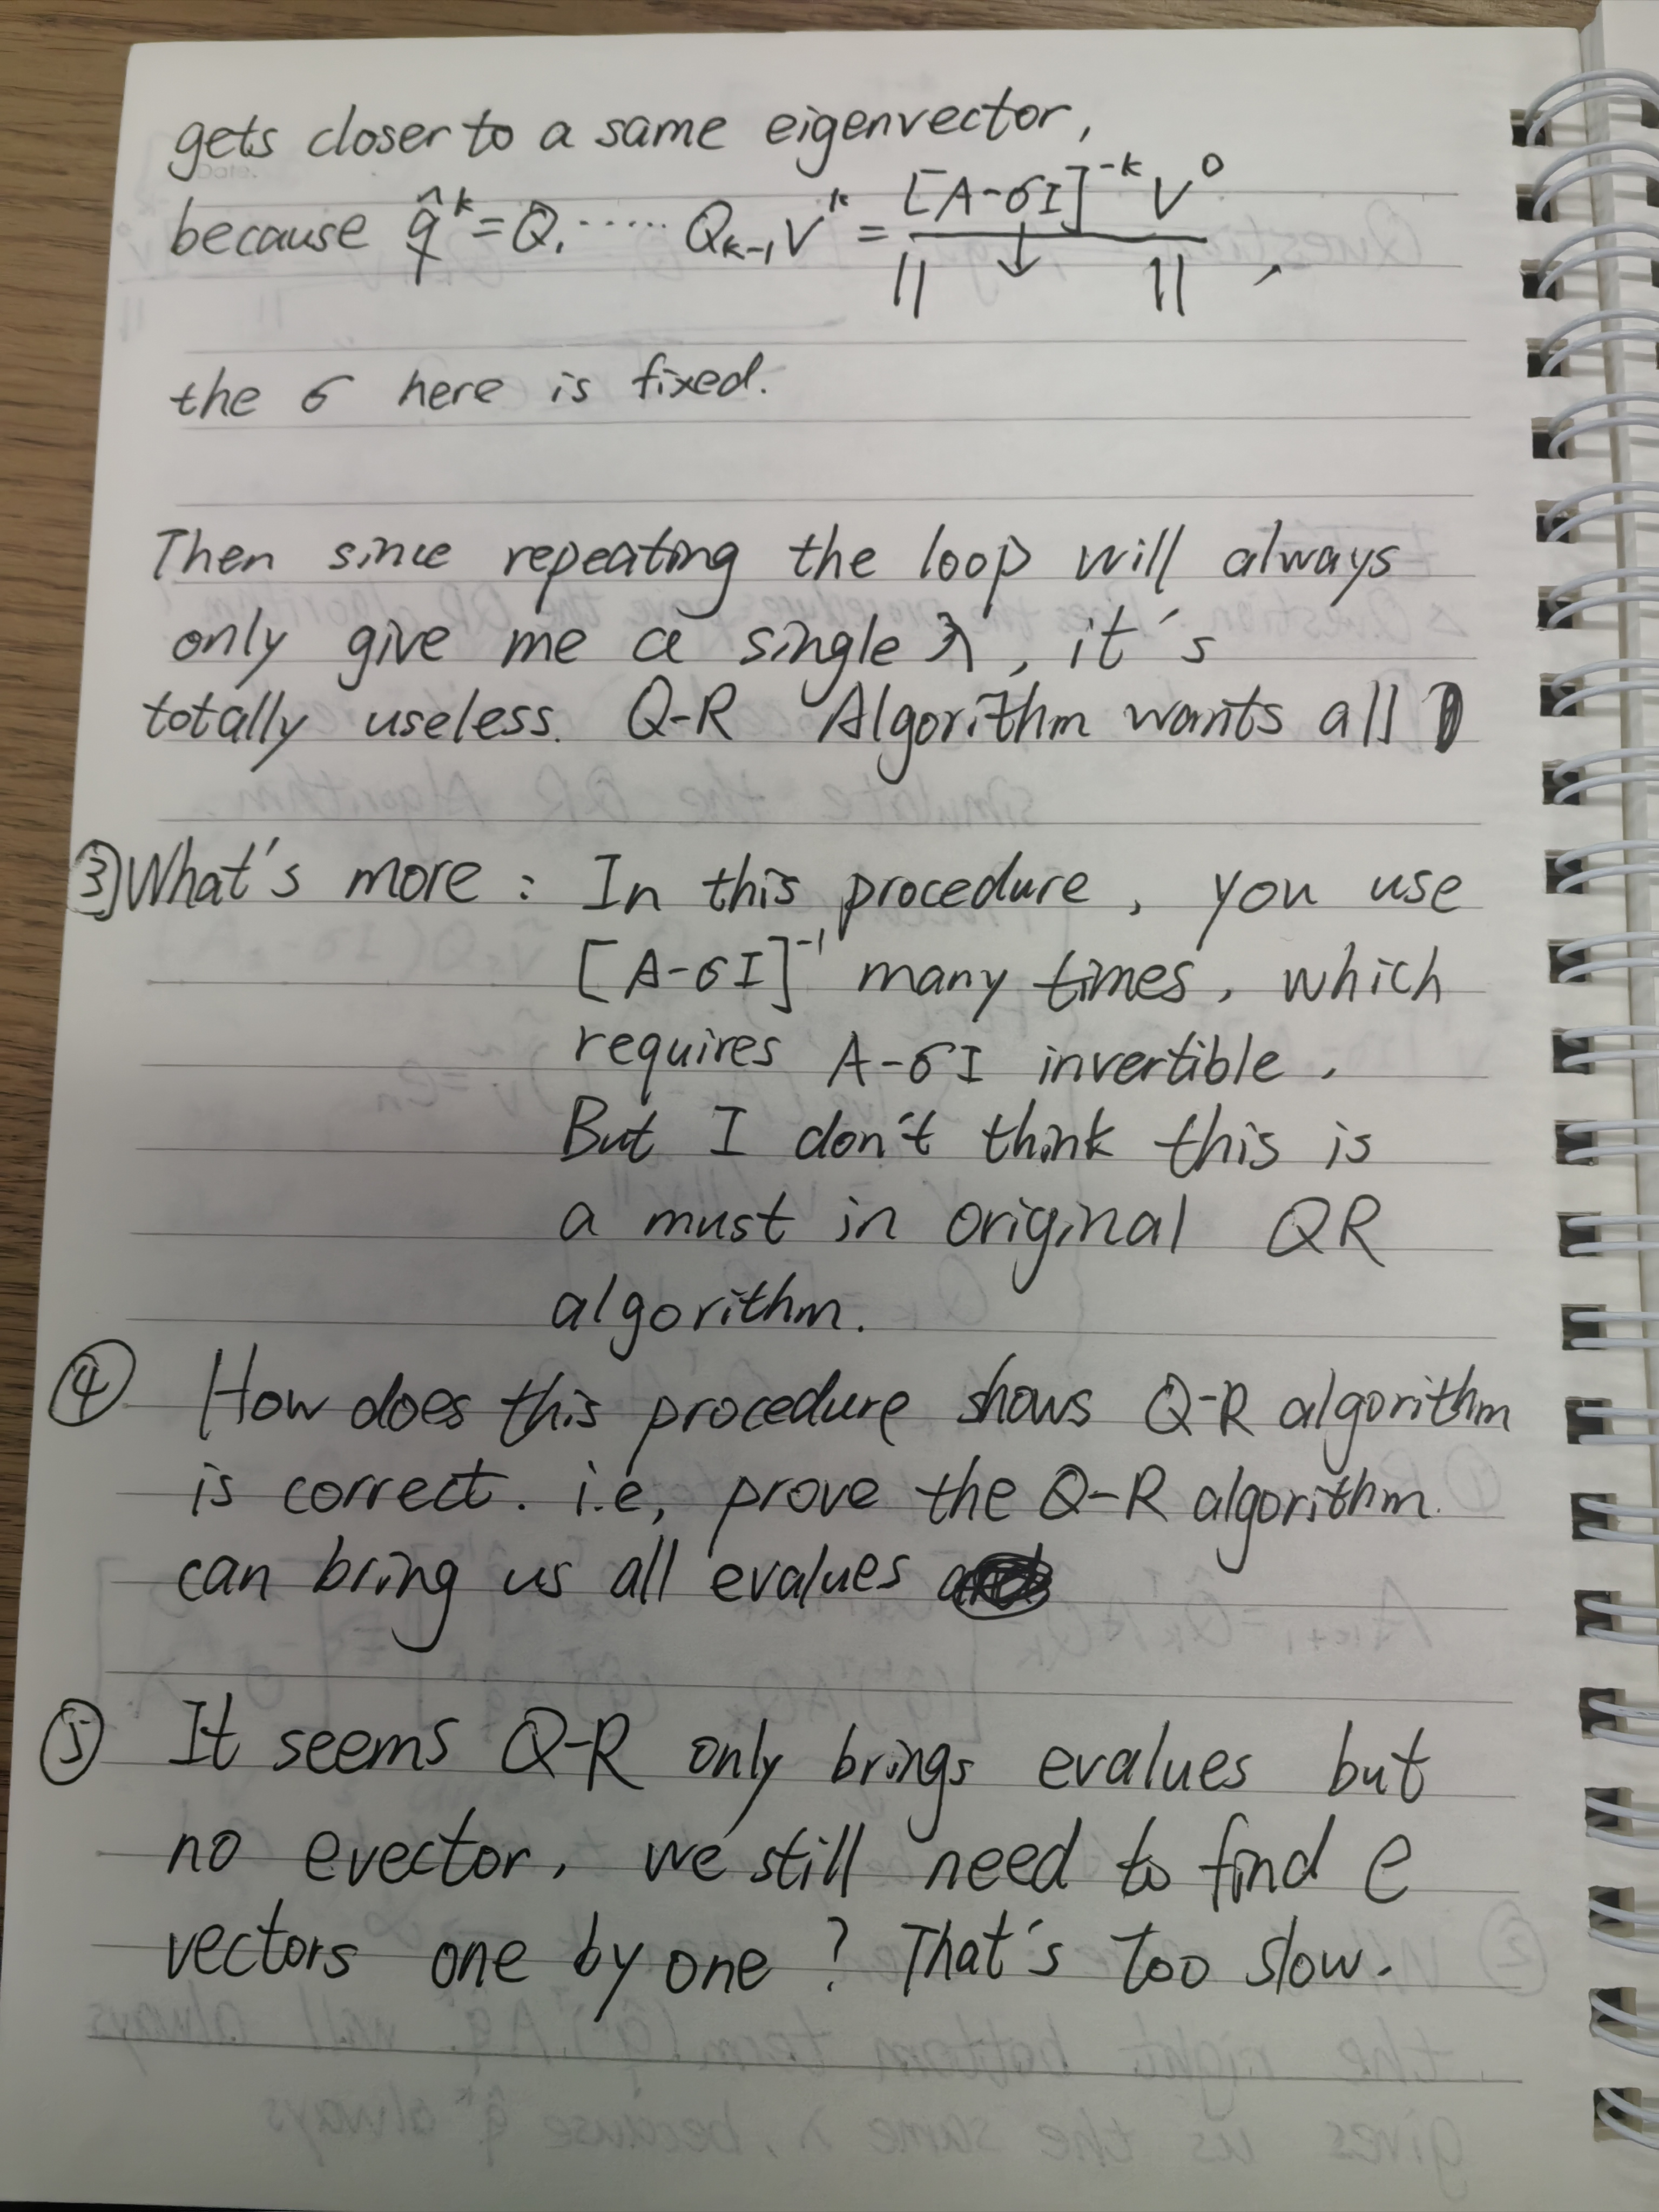 gets closer to a same eigenvector,
because q̂^k = Q₁ ...... Q_{k-1} V^k = [A-σI]^{-k} V^0 / ‖ ↓ ‖ ,
the σ here is fixed.
Then since repeating the loop will always
only give me a single λ, it's
totally useless. Q-R Algorithm wants all
③ What's more : In this procedure, you use
[A-σI]^{-1} many times, which
requires A-σI invertible.
But I don't think this is
a must in original QR
algorithm.
④ How does this procedure shows Q-R algorithm
is correct. i.e, prove the Q-R algorithm
can bring us all evalues
⑤ It seems Q-R only brings evalues but
no evector, we still need to find e
vectors one by one ? That's too slow.